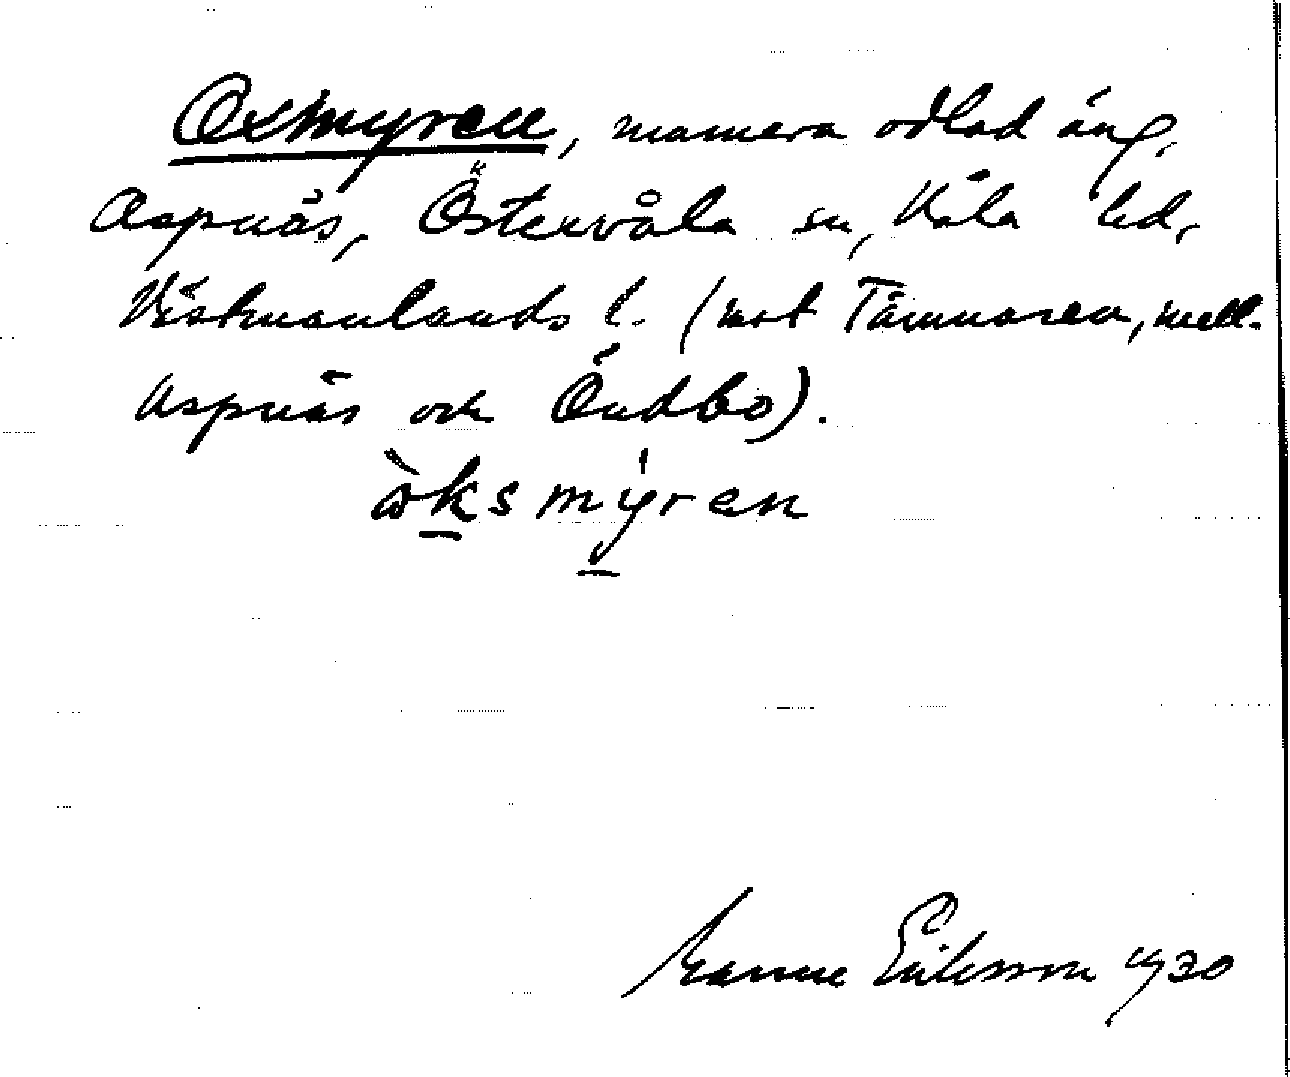 Oxmyren, numera odlad äng,
Aspnäs, Östervåla sn, Våla hd,
Västmanlands l. (mot Tämnaren, mell.
Aspnäs och Öndbo).
òksmýren
Manne Eriksson 1930